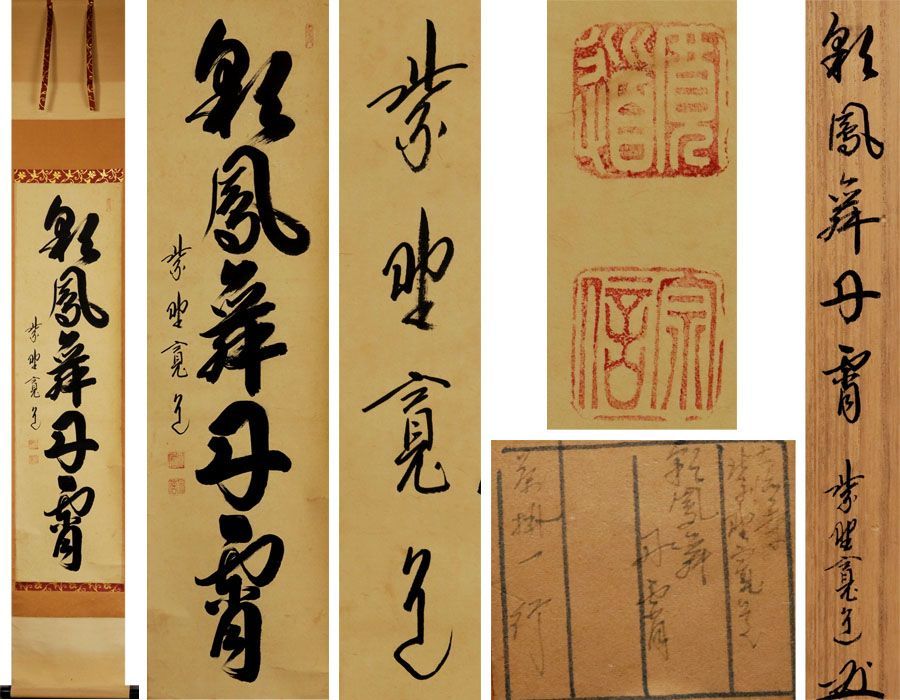 彩鳳舞丹霄
紫野寛道
彩鳳舞丹霄
紫野寛道
紫野寛道
寛道
宗信
大徳寺
紫野寛道
彩鳳舞
丹霄
茶掛一行
彩鳳舞丹霄 紫野寛道